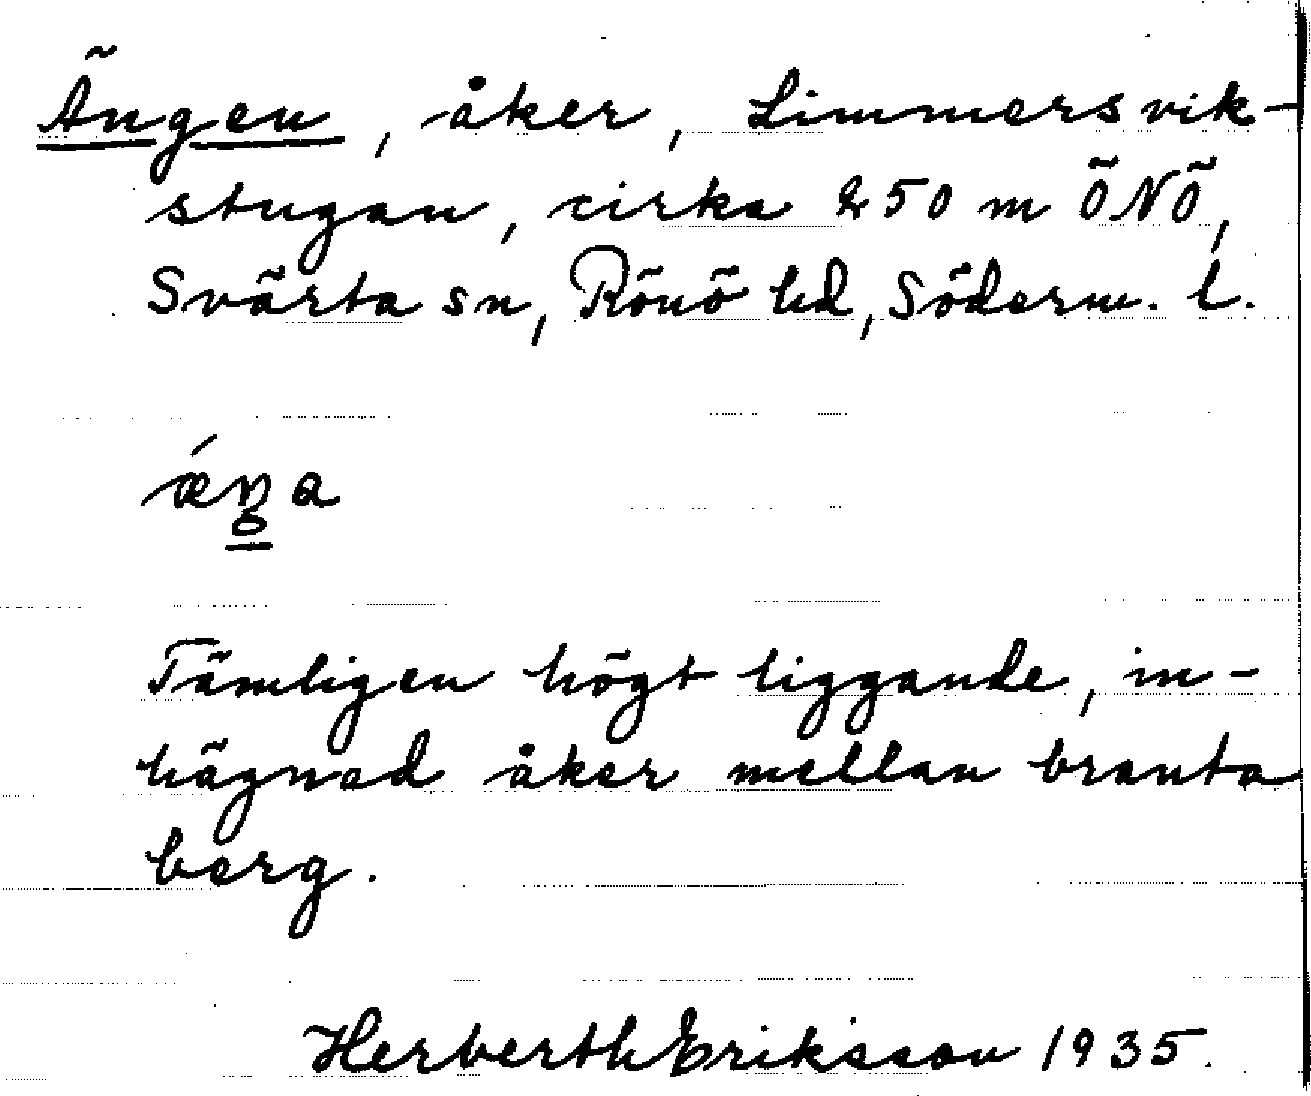 Ängen, åker, Limmersvik-
stugan, cirka 250 m ÖNÖ,
Svärta sn, Rönö hd, Söderm. l.
ǽŋ̥̲a
Tämligen högt liggande, in-
hägnad åker mellan branta
berg.
Herberth Eriksson 1935.